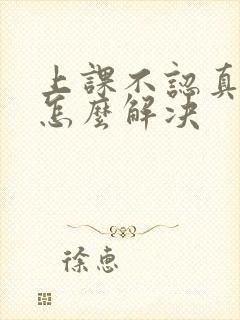 上課不認真
怎麼解決
徐惠